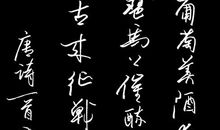 葡萄美酒
琶马上催醉
古来征戰
唐詩一首